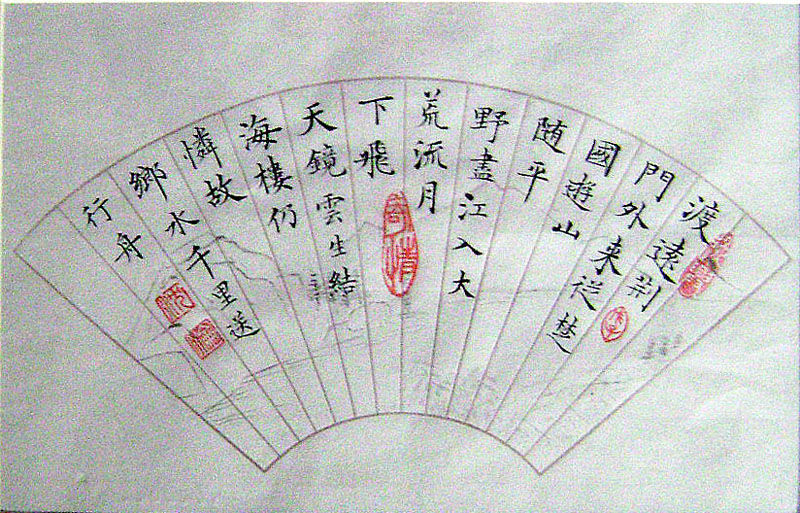 渡遠荆
門外来從楚
國遊山
随平
野盡江入大
荒流月
下飛
天鏡雲生結
海樓仍
憐故
鄉水千里送
行舟
寄情